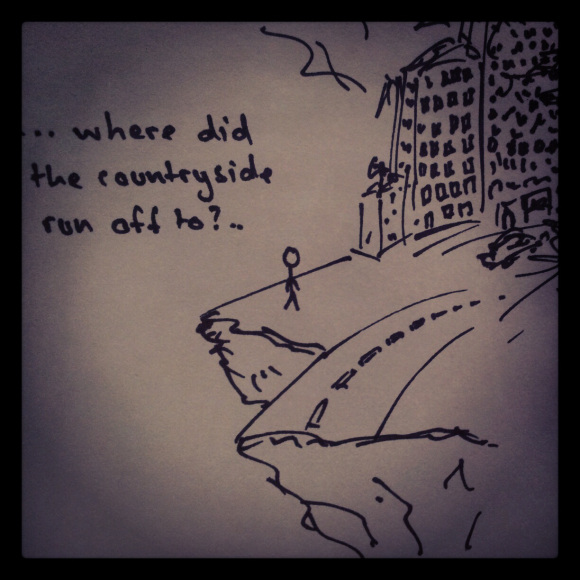 ... where did
the countryside
run off to?..